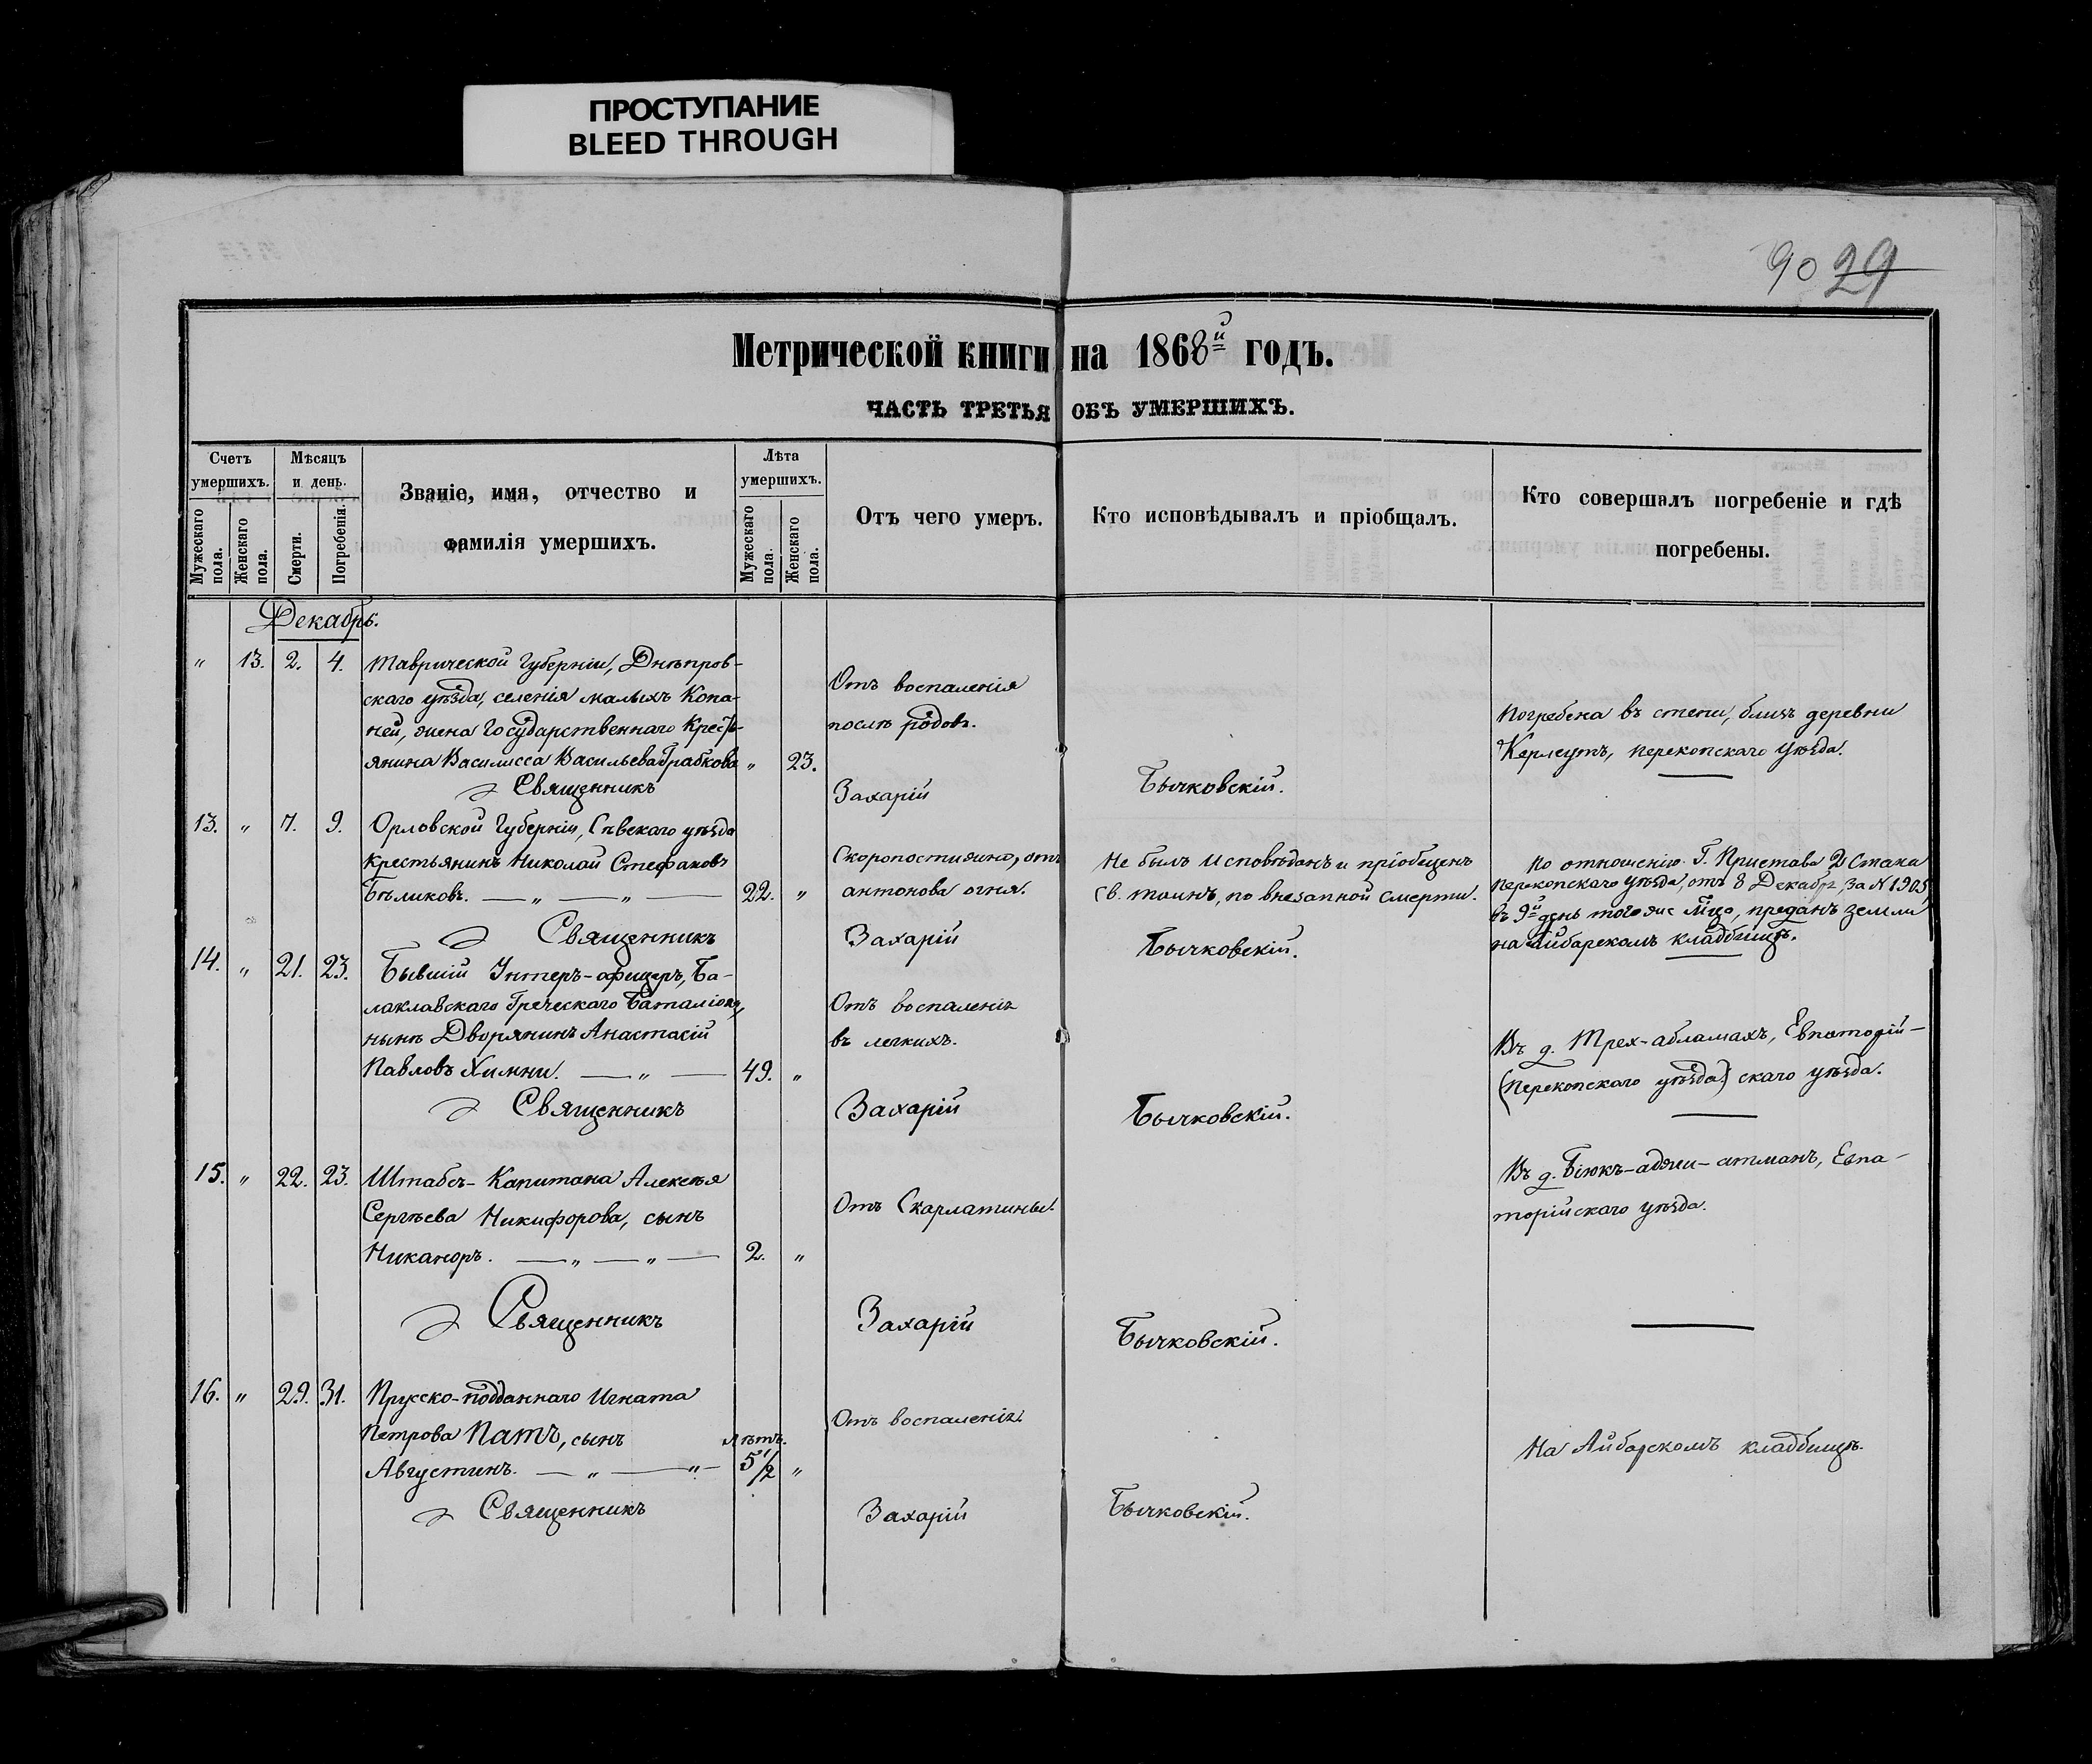 ПРОСТУПАНИЕ
BLEED THROUGH
90 29
Метрической книги на 1868й годъ.
ЧАСТЬ ТРЕТЬЯ ОБЪ УМЕРШИХЪ.
Счетъ умершихъ.
Мужескаго пола.
Женскаго пола.
Мѣсяцъ и день.
Смерти.
Погребенія.
Званіе, имя, отчество и
фамилія умершихъ.
Лѣта умершихъ.
Мужескаго пола.
Женскаго пола.
Отъ чего умеръ.
Кто исповѣдывалъ и пріобщалъ.
Кто совершалъ погребеніе и гдѣ
погребены.
Декабрь.
" 13. 2. 4. Таврической Губерніи, Днѣпров-
скаго уѣзда, селенія малыхъ Копа-
ней, жена Государственнаго Кресть-
янина Василисса Васильева Грабкова " 23.
Отъ воспаленія
послѣ родовъ.
Погребена въ степи, близъ деревни
Керлеутъ, перекопскаго уѣзда.
Священникъ Захарій Бычковскій.
13. " 7. 9. Орловской Губерніи, Сѣвскаго уѣзда
крестьянинъ Николай Стефановъ
Бѣликовъ. — " — " — 22. "
Скоропостижно, отъ
антонова огня.
Не былъ исповѣданъ и пріобщенъ
Св. таинъ, по внезапной смерти.
По отношенію Г. Пристава 2 Стана
перекопскаго уѣзда, отъ 8 Декабр, за N 1905,
въ 9й день того же Мца, преданъ земли
на Айбарскомъ кладбищѣ.
Священникъ Захарій Бычковскій.
14. " 21. 23. Бывшій Унтеръ-офицеръ, Ба-
лаклавскаго Греческаго Баталіона,
нынѣ Дворянинъ Анастасій
Павловъ Химни. — " — 49. "
Отъ воспаленія
въ легкихъ.
Въ д. Трех-абламахъ, Евпаторій-
(Перекопскаго уѣзда) скаго уѣзда.
Священникъ Захарій Бычковскій.
15. " 22. 23. Штабсъ-Капитана Алексѣя
Сергѣева Никифорова, сынъ
Никаноръ. — " — " — 2. "
Отъ Скарлатины.
Въ д. Біюкъ-аджи-атманъ, Евпа-
торійскаго уѣзда.
Священникъ Захарій Бычковскій.
16. " 29. 31. Прусско-подданнаго Игната
Петрова Патъ, сынъ лѣтъ.
Августинъ. — " — " — 5 1/2 "
Отъ воспаленія.
На Айбарскомъ кладбищѣ.
Священникъ Захарій Бычковскій.